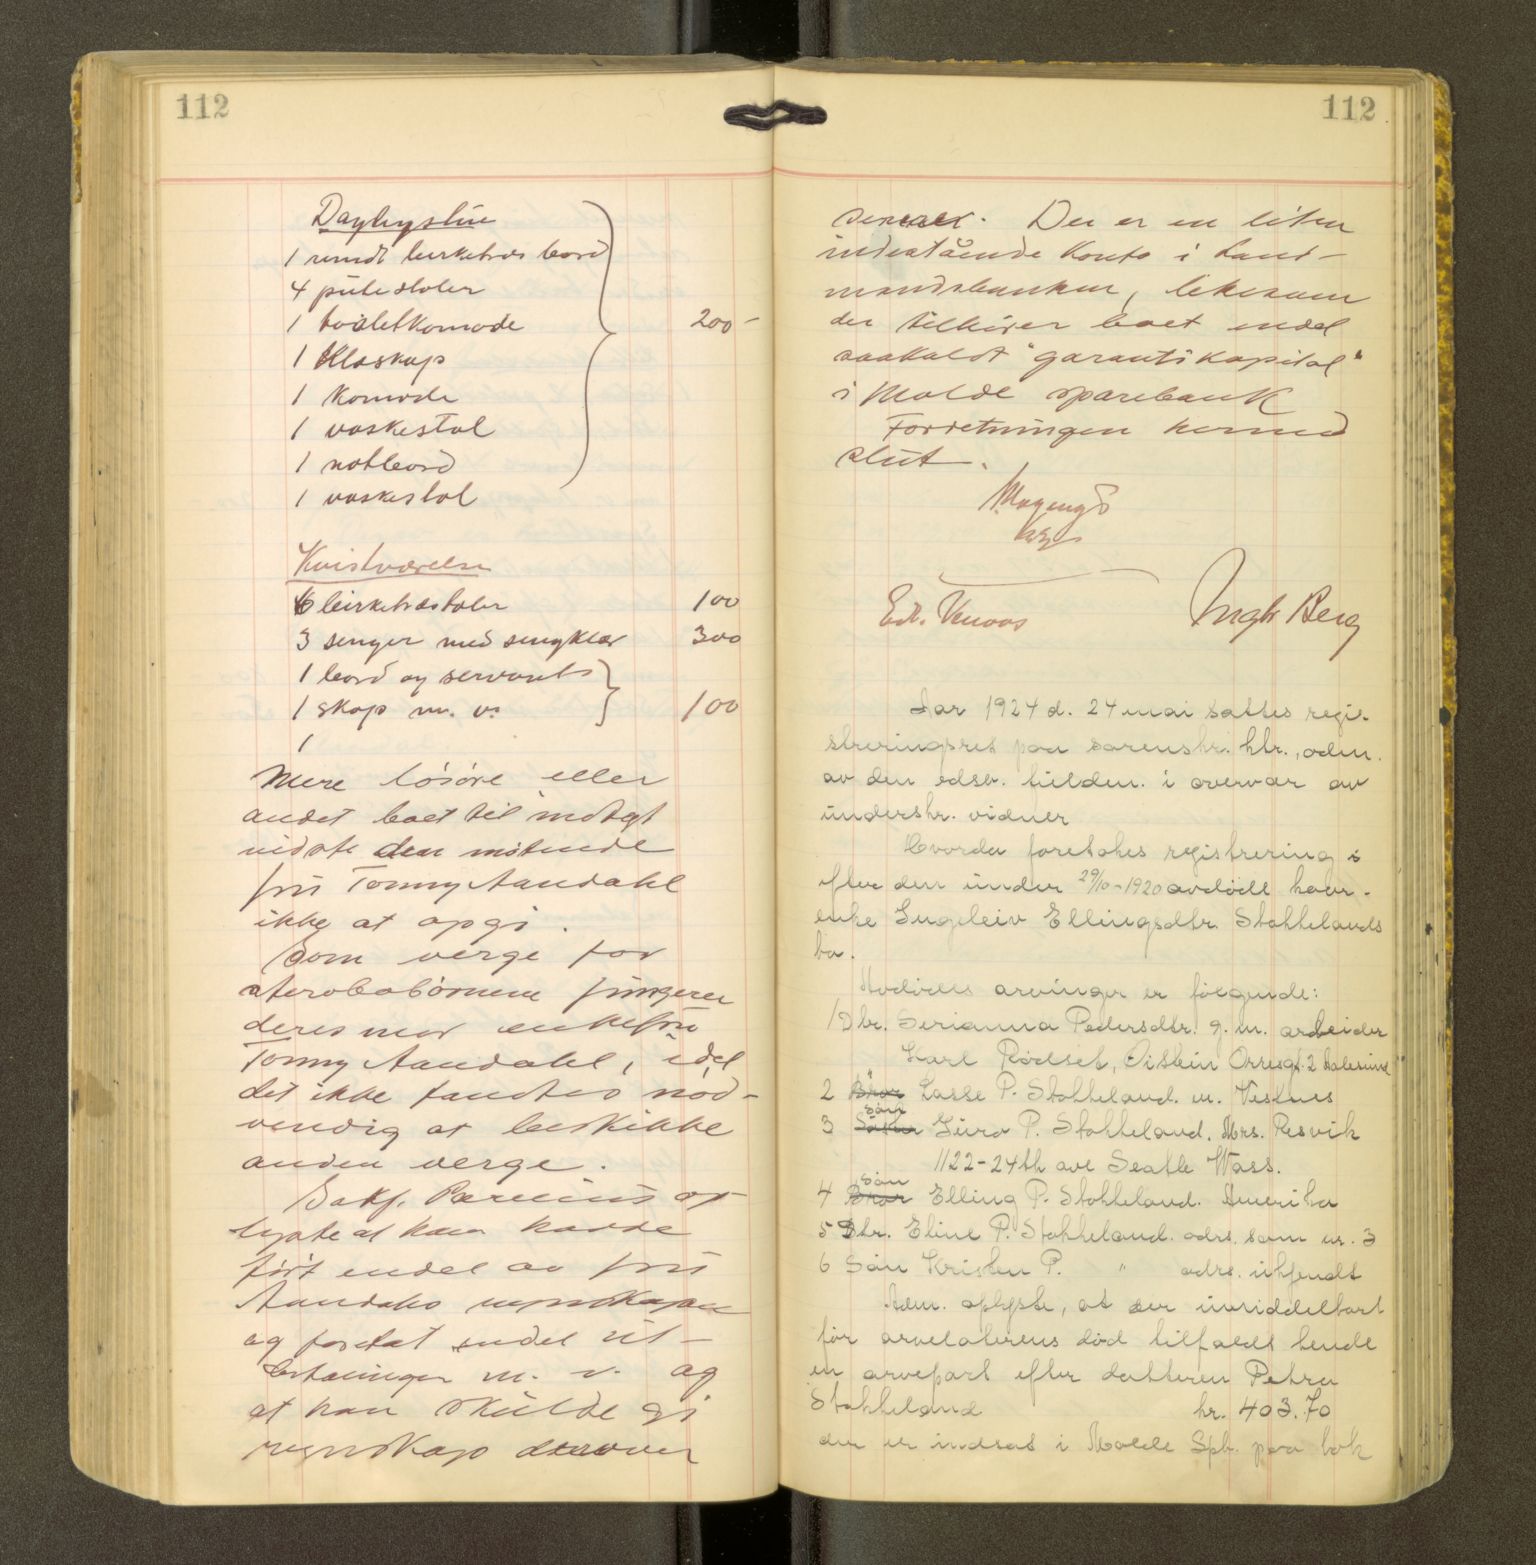 112
Daglystue
1 rundt birketræs bord
4 putestoler
1 toiletkomode 200 –
1 Klæskap
1 komode
1 vaskestol
1 natbord
1 vaskestol
Kvistværelse
6 birketræstoler 100
3 senger med sengklær 300
1 bord og servant
1 skap m. v. 100
1
Mere løsøre eller
andet boet til indtægt
vidste den møtende
fru Tonny Aandahl
ikke at opgi.
Som verge for
sterbobørnene fungerer
deres mor enkefru
Tonny Aandahl, idet
det ikke fandtes nød-
vendig at beskikke
anden verge.
Sakf. op-
lyste at han hadde
ført endel av fru
Aandahls regnskaper
og foretat endel ut-
betalinger m. v. og
at han skulde gi
regnskap derover
112
senere. Der er en liten
indestående konto i Land-
mandsbanken, likesom
der tilhører boet endel
saakaldt "garantikapital"
i Molde sparebank
Forretningen hermed
slut.
Edv. Ingbr Berg
Aar 1924 d. 24 mai sattes regi-
streringsret paa sorenskr. ktr., adm.
av den edsv. fuldm. i overvær av
underskr. vidner
Hvorda foretokes registrering i
efter den under 29/10-1920 avdøde kaar-
enke Ingeleiv Ellingsdtr. Stokkelands
bo.
Avdødes arvinger er følgende:
1) Dtr. Serianna Pedersdtr. g. m. arbeider
Karl Rødset, Øistein Orresgt. 2 Aalesund
2 Bror " Lasse P. Stokkeland. m. Vestnes
3 søn Gura P. Stokkeland, Mrs. Resvik
1122-24th ave Seatle Wass.
4 Bror søn Elling P. Stokkeland. Amerika
5 Dtr. Eline P. Stokkeland. adrs. som nr. 3
6 Søn Kristen P. " adrs. ukjendt
Adm. oplyste, at der umiddelbart
før arvelaterens død tilfaldt hende
en arvepart efter datteren Petra
Stokkeland kr. 403.70
der er indsat i Molde Spb. paa bok